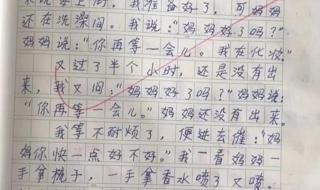 来说马上，我准备好了，可妈妈
还在洗澡间。我说：“妈妈好了吗？”
妈妈说：“你再等一会儿。我在化妆。”
又过了半个小时，还是没有出
来，我又问：“妈妈好了吗？”妈妈说：
“你再等一会儿。”妈妈还没有出来。
我等不耐烦了，便进去催：“妈
妈你快一点好不好。”我一看妈妈一
手拿梳子，一手拿香水喷了又喷。